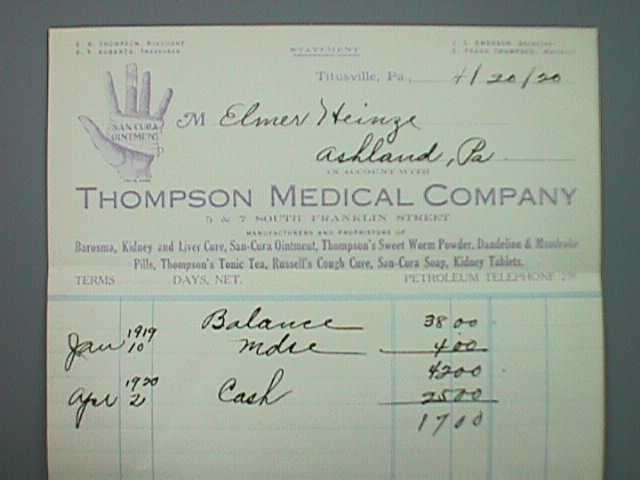 E. O. THOMPSON, PRESIDENT
STATEMENT
Titusville, Pa., 4/20/20
SAN-CURA
OINTMENT
M Elmer Heinze
Ashland, Pa
IN ACCOUNT WITH
THOMPSON MEDICAL COMPANY
5 & 7 SOUTH FRANKLIN STREET
MANUFACTURERS AND PROPRIETORS OF
Barosma, Kidney and Liver Cure, San-Cura Ointment, Thompson's Sweet Worm Powder, Dandelion & Mandrake
Pills, Thompson's Tonic Tea, Russell's Cough Cure, San-Cura Soap, Kidney Tablets.
TERMS DAYS, NET. PETROLEUM TELEPHONE
Balance 38 00
Jan 1919 10 Mdse 4 00
42 00
Apr 1920 2 Cash 25 00
17 00